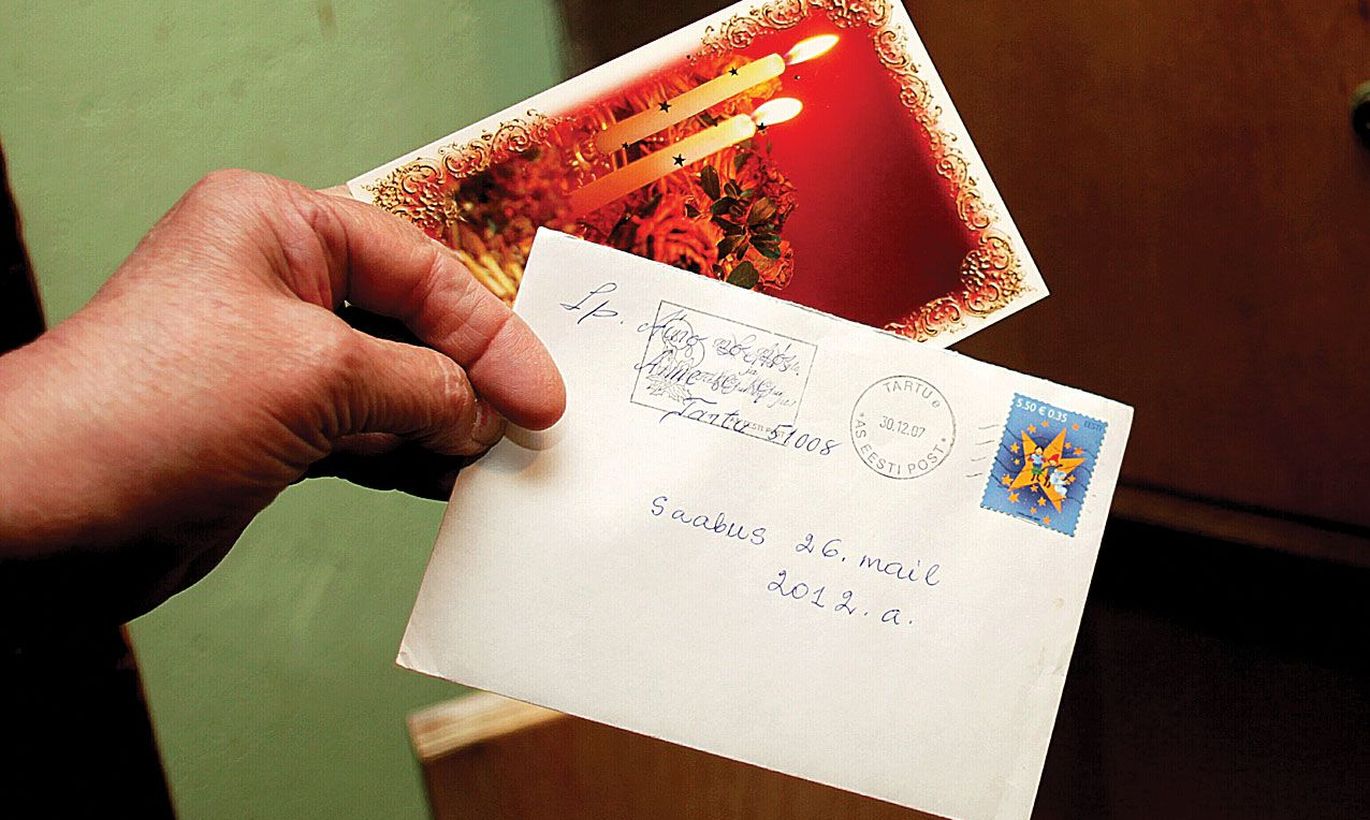 Lp.
Tartu 51008
TARTU e
30.12.07
*AS EESTI POST*
5.50 € 0.35
EESTI
Saabus 26. mail
2012. a.